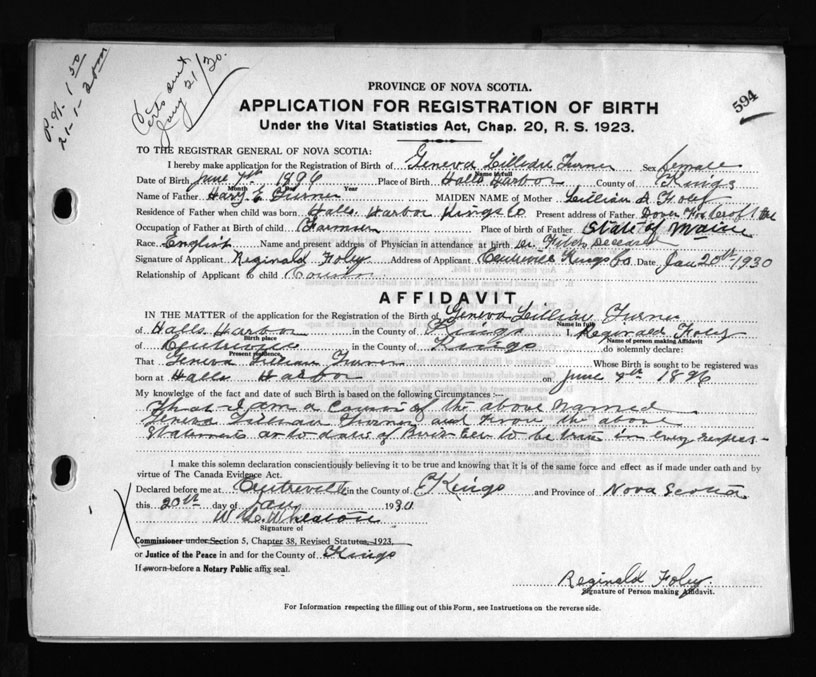 P.N. 1 50
21-1-30
Certs sent
Jany 21/30.
594
PROVINCE OF NOVA SCOTIA.
APPLICATION FOR REGISTRATION OF BIRTH
Under the Vital Statistics Act, Chap. 20, R. S. 1923.
TO THE REGISTRAR GENERAL OF NOVA SCOTIA:
I hereby make application for the Registration of Birth of Geneva Lillian Turner Sex female
Name in full
Date of Birth June 7th 1896 Place of Birth Halls Harbor County of Kings
Month Day Year
Name of Father Harry E Turner MAIDEN NAME of Mother Lillian D. Foley
Residence of Father when child was born Halls Harbor Kings Co Present address of Father Dover Foxcroft Me
Occupation of Father at Birth of child Farmer Place of birth of Father State of Maine
Race English Name and present address of Physician in attendance at birth Dr. Fitch Deceased
Signature of Applicant Reginald Foley Address of Applicant Centreville Kings Co Date Jan 20th 1930
Relationship of Applicant to child Cousin
AFFIDAVIT
IN THE MATTER of the application for the Registration of the Birth of Geneva Lillian Turner
Name in full
of Halls Harbor in the County of Kings I, Reginald Foley
Birth place Name of person making Affidavit
of Centreville in the County of Kings do solemnly declare:
Present residence
That Geneva Lillian Turner Whose Birth is sought to be registered was
born at Halls Harbor on June 7th 1896
My knowledge of the fact and date of such Birth is based on the following Circumstances :—
That I am a Cousin of the above Named
Geneva Lillian Turner and know the above
Statement as to date of Birth to be true in every respect
I make this solemn declaration conscientiously believing it to be true and knowing that it is of the same force and effect as if made under oath and by
virtue of The Canada Evidence Act.
Declared before me at Centreville in the County of Kings and Province of Nova Scotia
this 20th day of Jany 1930
W. C. Wheaton
Signature of
Commissioner under Section 5, Chapter 38, Revised Statutes, 1923.
or Justice of the Peace in and for the County of Kings
If sworn before a Notary Public affix seal.
Reginald Foley
Signature of Person making Affidavit.
For Information respecting the filling out of this Form, see Instructions on the reverse side.